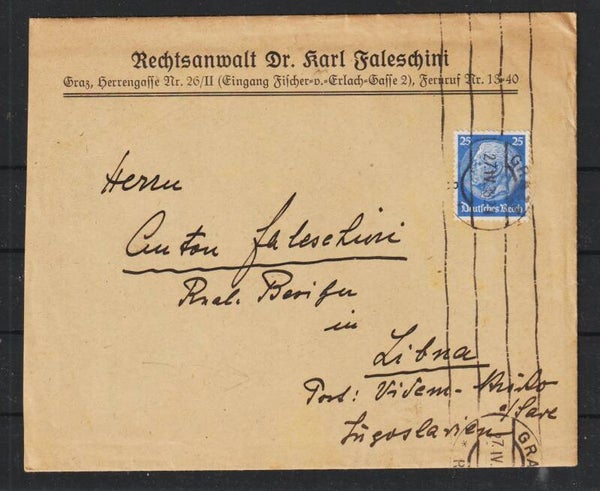 Rechtsanwalt Dr. Karl Faleschini
Graz, Herrengasse Nr. 26/II (Eingang Fischer-v.-Erlach-Gasse 2), Fernruf Nr. 13-40
25 25
Deutsches Reich
27.IV.
Herrn
Anton Faleschini
Real. Besitzer
in
Libna
Post: Videm-
a/Save
Jugoslavien
GRA
27.IV.